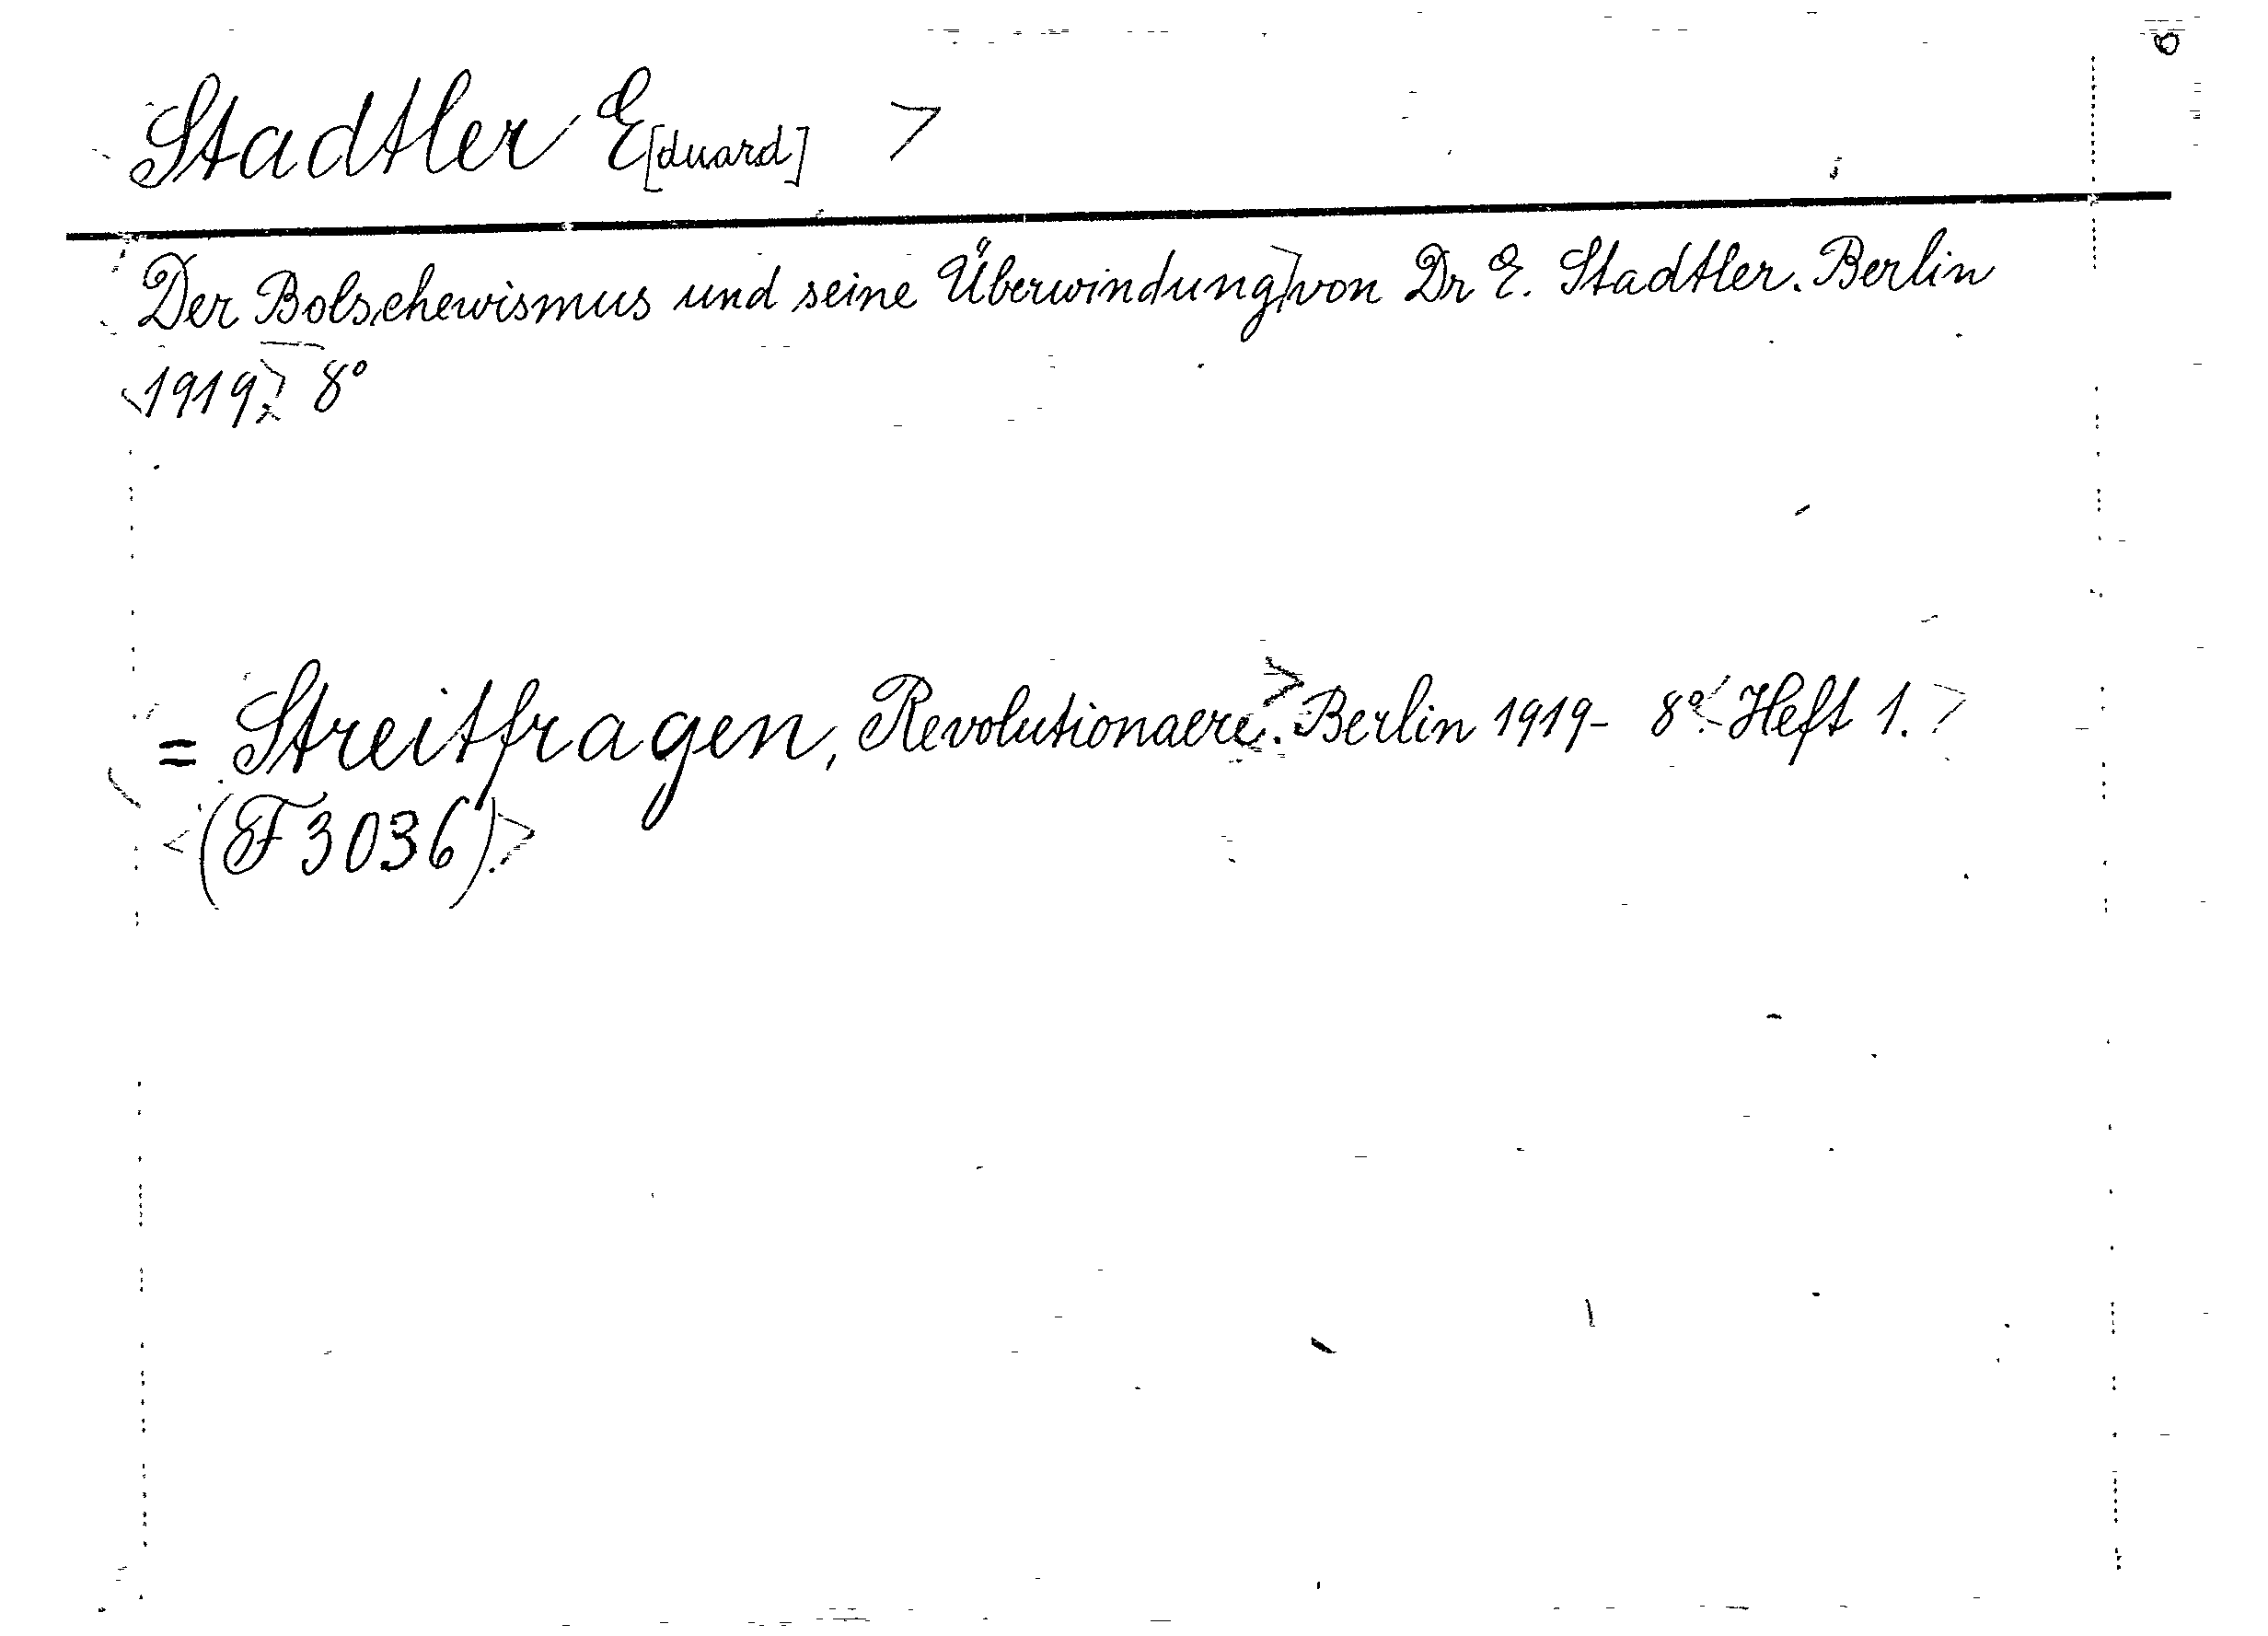 Stadtler E[duard] >
Der Bolschewismus und seine Überwindung> von Dr E. Stadtler. Berlin
<1919.> 8°
= Streitfragen, Revolutionaere.> Berlin 1919- 8°.< Heft 1.>
<(F 3036).>